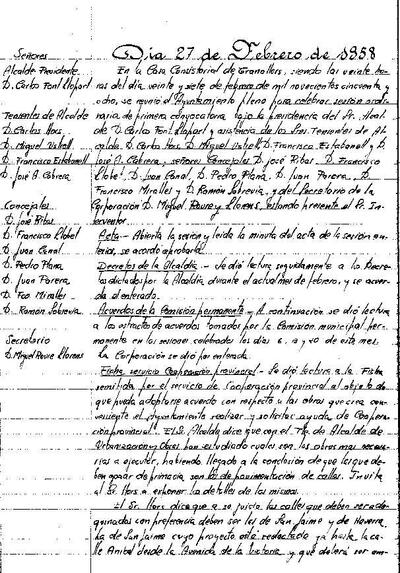 Señores
Alcalde Presidente
D. Carlos Font Llopart
Tenientes de Alcalde
D. Carlos Hors
D. Miguel Usbell
D. Francisco Estabanell
D. José A. Cabrera
Concejales
D. José Ribas
D. Francisco Llobet
D. Juan Canal
D. Pedro Plana
D. Juan Parera
D. Fco Miralles
D. Ramon Sobrevia
Secretario
D. Miguel Roure Llorens
Dia 27 de Febrero de 1958
En la Casa Consistorial de Granollers, siendo las veinte ho-
ras del dia, veinte y siete de febrero de mil novecientos cincuenta y
ocho, se reunió el Ayuntamiento pleno para celebrar sesión ordi-
naria de primera convocatoria bajo la presidencia del Sr. Alcal-
de D. Carlos Font Llopart y asistencia de los Sres. Tenientes de Al-
calde, D. Carlos Hors, D. Miguel Usbell, D. Francisco Estabanell y D.
José A. Cabrera, señores Concejales D. José Ribas, D. Francisco
Llobet, D. Juan Canal, D. Pedro Plana, D. Juan Parera, D.
Francisco Miralles y D. Ramon Sobrevia, y del Secretario de la
Corporación D. Miguel Roure y Llorens, estando presente el Sr. In-
terventor.
Acta.- Abierta la sesión y leida la minuta del acta de la sesión an-
terior, se acordó aprobarla.
Decretos de la Alcaldia.- Se dió lectura seguidamente a los Decre-
tos dictados por la Alcaldia, durante el actual mes de febrero, y se acuer-
da el enterado.
Acuerdos de la Comisión permanente.- A continuación se dió lectura
a los extractos de acuerdos tomados por la Comision municipal per-
manente en las sesiones celebradas los dias 6, y 20 de este mes.
La Corporación se dió por enterada.
Ficha servicio Cooperación provincial.- Se dió lectura a la Ficha
remitida por el servicio de Cooperación provincial al objeto de
que pueda adoptarse acuerdo con respecto a las obras que crea con-
veniente el Ayuntamiento realizar y solicitar ayuda de Coopera-
ción provincial. El Sr. Alcalde dice que con el Tte. de Alcalde de
Urbanizacion y Obras han estudiado cuales son las obras mas necesa-
rias a ejecutar, habiendo llegado a la conclusión de que las que de-
ben gozar de primacia son las de pavimentación de calles. Invita
al Sr. Hors a exponer los detalles de las mismas.
El Sr. Hors dice que a su juicio las calles que deben ser ado-
quinadas con preferencia deben ser las de San Jaime y de Navarra.
La de San Jaime cuyo proyecto está redactado ya hasta la ca-
lle Anibal desde la Avenida de la Victoria y que deberá ser am-